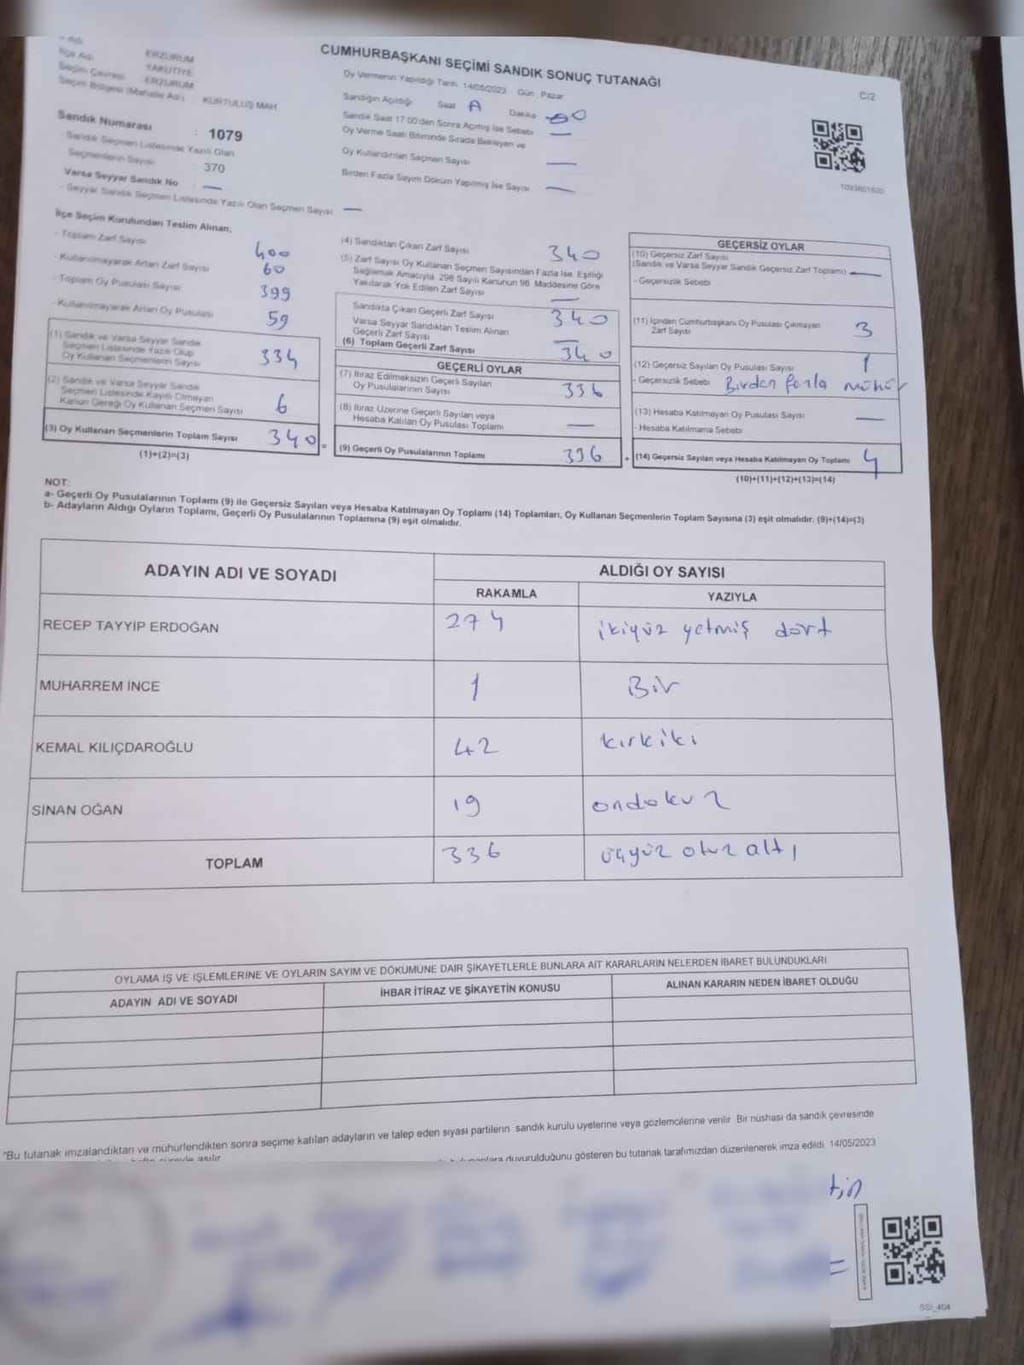 CUMHURBAŞKANI SEÇİMİ SANDIK SONUÇ TUTANAĞI
C/2
İlçe Adı
ERZURUM
YAKUTİYE
Seçim Çevresi
ERZURUM
Seçim Bölgesi (Mahalle Adı)
: KURTULUŞ MAH
Sandık Numarası : 1079
- Sandık Seçmen Listesinde Yazılı Olan
Seçmenlerin Sayısı 370
Varsa Seyyar Sandık No —
- Seyyar Sandık Seçmen Listesinde Yazılı Olan Seçmen Sayısı —
Oy Vermenin Yapıldığı Tarih 14/05/2023 Gün Pazar
Sandığın Açıldığı Saat Dakika
Sandık Saat 17:00'den Sonra Açılmış İse Sebebi —
Oy Verme Saati Bitiminde Sırada Bekleyen ve
Oy Kullandırılan Seçmen Sayısı —
Birden Fazla Sayım Döküm Yapılmış İse Sayısı —
1093861820
İlçe Seçim Kurulundan Teslim Alınan;
- Toplam Zarf Sayısı 400
- Kullanılmayarak Artan Zarf Sayısı 60
- Toplam Oy Pusulası Sayısı 399
- Kullanılmayarak Artan Oy Pusulası 59
(1) Sandık ve Varsa Seyyar Sandık
Seçmen Listesinde Yazılı Olup
Oy Kullanan Seçmenlerin Sayısı 334
(2) Sandık ve Varsa Seyyar Sandık
Seçmen Listesinde Kayıtlı Olmayan
Kanun Gereği Oy Kullanan Seçmen Sayısı 6
(3) Oy Kullanan Seçmenlerin Toplam Sayısı 340 =
(1)+(2)=(3)
(4) Sandıktan Çıkan Zarf Sayısı 340
(5) Zarf Sayısı Oy Kullanan Seçmen Sayısından Fazla İse, Eşitliği
Sağlamak Amacıyla 298 Sayılı Kanunun 98. Maddesine Göre
Yakılarak Yok Edilen Zarf Sayısı —
Sandıkta Çıkan Geçerli Zarf Sayısı 340
Varsa Seyyar Sandıktan Teslim Alınan
Geçerli Zarf Sayısı —
(6) Toplam Geçerli Zarf Sayısı 340
GEÇERLİ OYLAR
(7) İtiraz Edilmeksizin Geçerli Sayılan
Oy Pusulalarının Sayısı 336
(8) İtiraz Üzerine Geçerli Sayılan veya
Hesaba Katılan Oy Pusulası Toplamı —
(9) Geçerli Oy Pusulalarının Toplamı 336 +
GEÇERSİZ OYLAR
(10) Geçersiz Zarf Sayısı
(Sandık ve Varsa Seyyar Sandık Geçersiz Zarf Toplamı) —
- Geçersizlik Sebebi
(11) İçinden Cumhurbaşkanı Oy Pusulası Çıkmayan
Zarf Sayısı 3
(12) Geçersiz Sayılan Oy Pusulası Sayısı 1
- Geçersizlik Sebebi Birden fazla mühür
(13) Hesaba Katılmayan Oy Pusulası Sayısı —
- Hesaba Katılmama Sebebi
(14) Geçersiz Sayılan veya Hesaba Katılmayan Oy Toplamı 4
(10)+(11)+(12)+(13)=(14)
NOT:
a- Geçerli Oy Pusulalarının Toplamı (9) ile Geçersiz Sayılan veya Hesaba Katılmayan Oy Toplamı (14) Toplamları, Oy Kullanan Seçmenlerin Toplam Sayısına (3) eşit olmalıdır. (9)+(14)=(3)
b- Adayların Aldığı Oyların Toplamı, Geçerli Oy Pusulalarının Toplamına (9) eşit olmalıdır.
ADAYIN ADI VE SOYADI
ALDIĞI OY SAYISI
RAKAMLA YAZIYLA
RECEP TAYYİP ERDOĞAN 274 ikiyüz yetmiş dört
MUHARREM İNCE 1 Bir
KEMAL KILIÇDAROĞLU 42 kırkiki
SİNAN OĞAN 19 ondokuz
TOPLAM 336 üçyüz otuz altı
OYLAMA İŞ VE İŞLEMLERİNE VE OYLARIN SAYIM VE DÖKÜMÜNE DAİR ŞİKAYETLERLE BUNLARA AİT KARARLARIN NELERDEN İBARET BULUNDUKLARI
ADAYIN ADI VE SOYADI İHBAR İTİRAZ VE ŞİKAYETİN KONUSU ALINAN KARARIN NEDEN İBARET OLDUĞU
*Bu tutanak imzalandıktan ve mühürlendikten sonra seçime katılan adayların ve talep eden siyasi partilerin sandık kurulu üyelerine veya gözlemcilerine verilir. Bir nüshası da sandık çevresinde
duyurulduğunu gösteren bu tutanak tarafımızdan düzenlenerek imza edildi. 14/05/2023
tin
SSİ_404